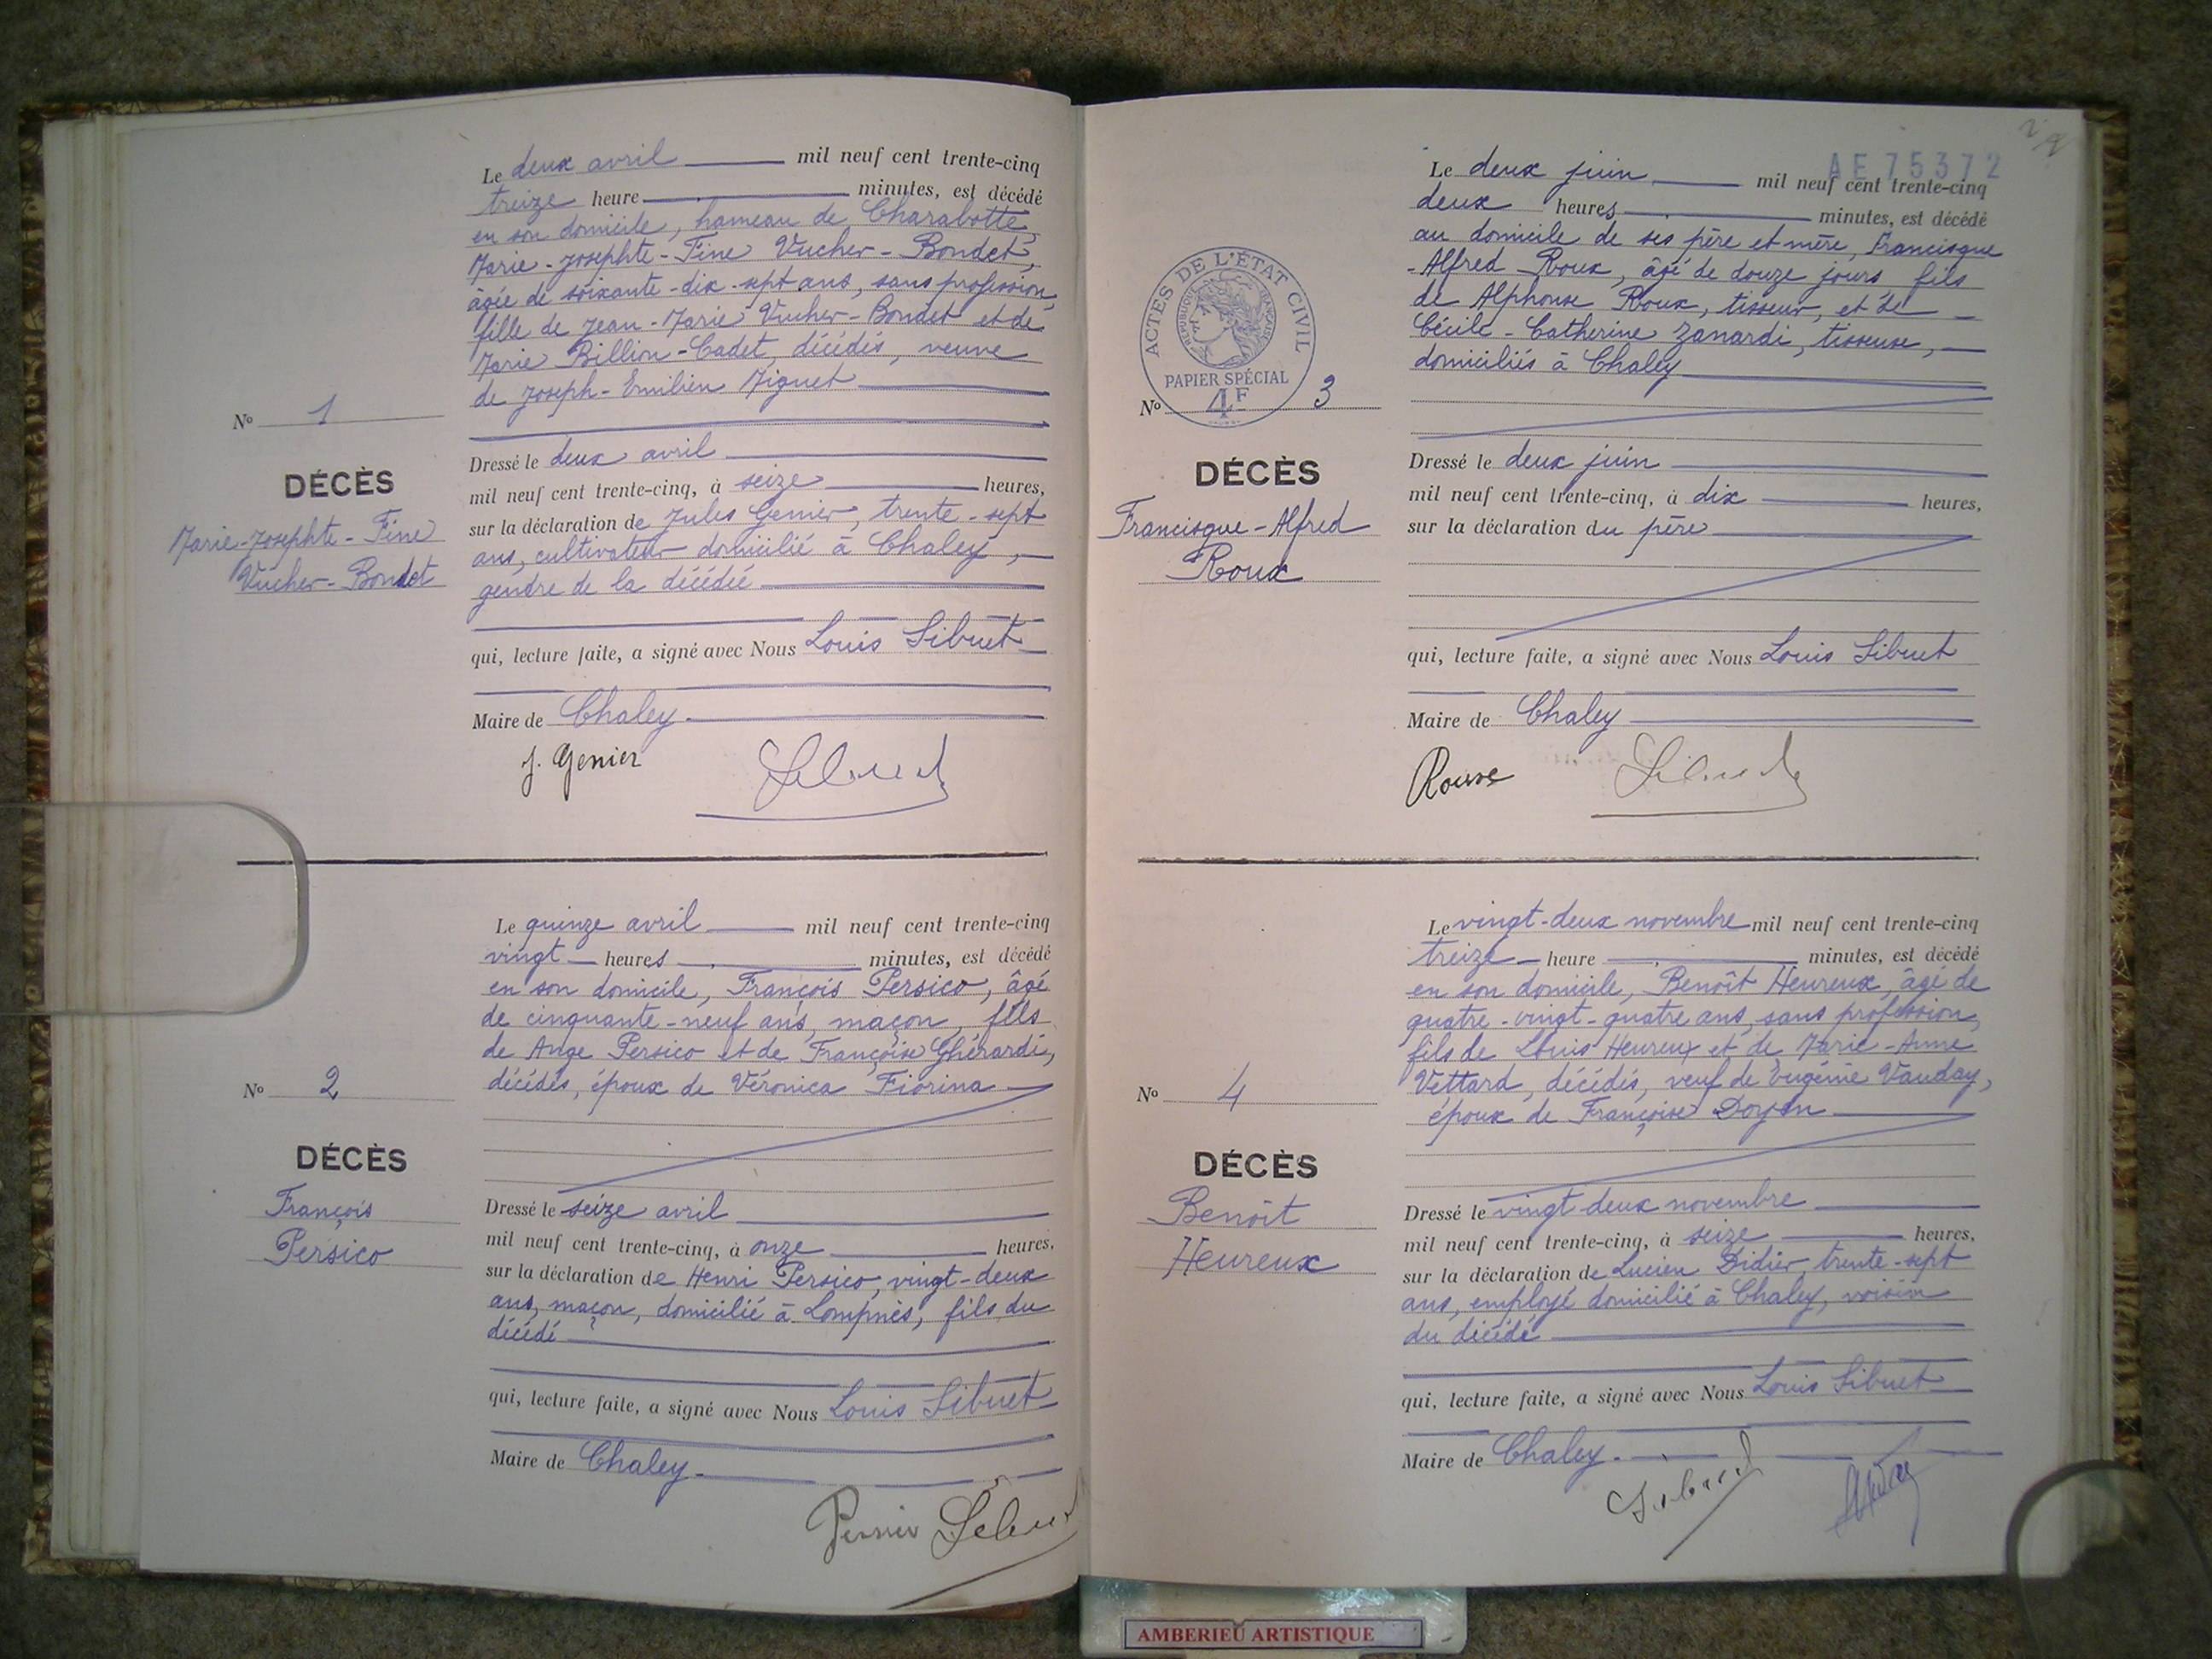 Le deux avril mil neuf cent trente-cinq
treize heure minutes, est décédé
en son domicile, hameau de Charabotte,
Marie-Josephte-Fine Vucher-Bondet,
âgée de soixante-dix-sept ans, sans profession,
fille de Jean-Marie Vucher-Bondet et de
Marie Billion-Cadet, décédés, veuve
de Joseph-Emilien Miguet
No 1
DÉCÈS
Marie-Josephte-Fine
Vucher-Bondet
Dressé le deux avril
mil neuf cent trente-cinq, à seize heures,
sur la déclaration de Jules Genier, trente-sept
ans, cultivateur domicilié à Chaley,
gendre de la décédée
qui, lecture faite, a signé avec Nous Louis Sibuet
Maire de Chaley.
J. Genier Sibuet
Le quinze avril mil neuf cent trente-cinq
vingt heures minutes, est décédé
en son domicile, François Persico, âgé
de cinquante-neuf ans, maçon, fils
de Ange Persico et de Françoise Ghérardi,
décédés, époux de Véronica Fiorina
No 2
DÉCÈS
François
Persico
Dressé le seize avril
mil neuf cent trente-cinq, à onze heures,
sur la déclaration de Henri Persico, vingt-deux
ans, maçon, domicilié à Lompnès, fils du
décédé
qui, lecture faite, a signé avec Nous Louis Sibuet
Maire de Chaley.
Sibuet
AE75372
Le deux juin mil neuf cent trente-cinq
deux heures minutes, est décédé
au domicile de ses père et mère, Francisque
-Alfred Roux, âgé de douze jours fils
de Alphonse Roux, tisseur, et de
Cécile-Catherine Zanardi, tisseuse,
domiciliés à Chaley
ACTES DE L'ÉTAT CIVIL
RÉPUBLIQUE FRANÇAISE
PAPIER SPÉCIAL
4F
No 3
DÉCÈS
Francisque-Alfred
Roux
Dressé le deux juin
mil neuf cent trente-cinq, à dix heures,
sur la déclaration du père
qui, lecture faite, a signé avec Nous Louis Sibuet
Maire de Chaley
Roux Sibuet
Le vingt-deux novembre mil neuf cent trente-cinq
treize heure minutes, est décédé
en son domicile, Benoît Heureux, âgé de
quatre-vingt-quatre ans, sans profession,
fils de Louis Heureux et de Marie-Anne
Vettard, décédés, veuf de Eugénie Vauday,
époux de Françoise Doyen
No 4
DÉCÈS
Benoît
Heureux
Dressé le vingt-deux novembre
mil neuf cent trente-cinq, à seize heures,
sur la déclaration de Lucien Didier, trente-sept
ans, employé domicilié à Chaley, voisin
du décédé
qui, lecture faite, a signé avec Nous Louis Sibuet
Maire de Chaley.
Sibuet
AMBERIEU ARTISTIQUE